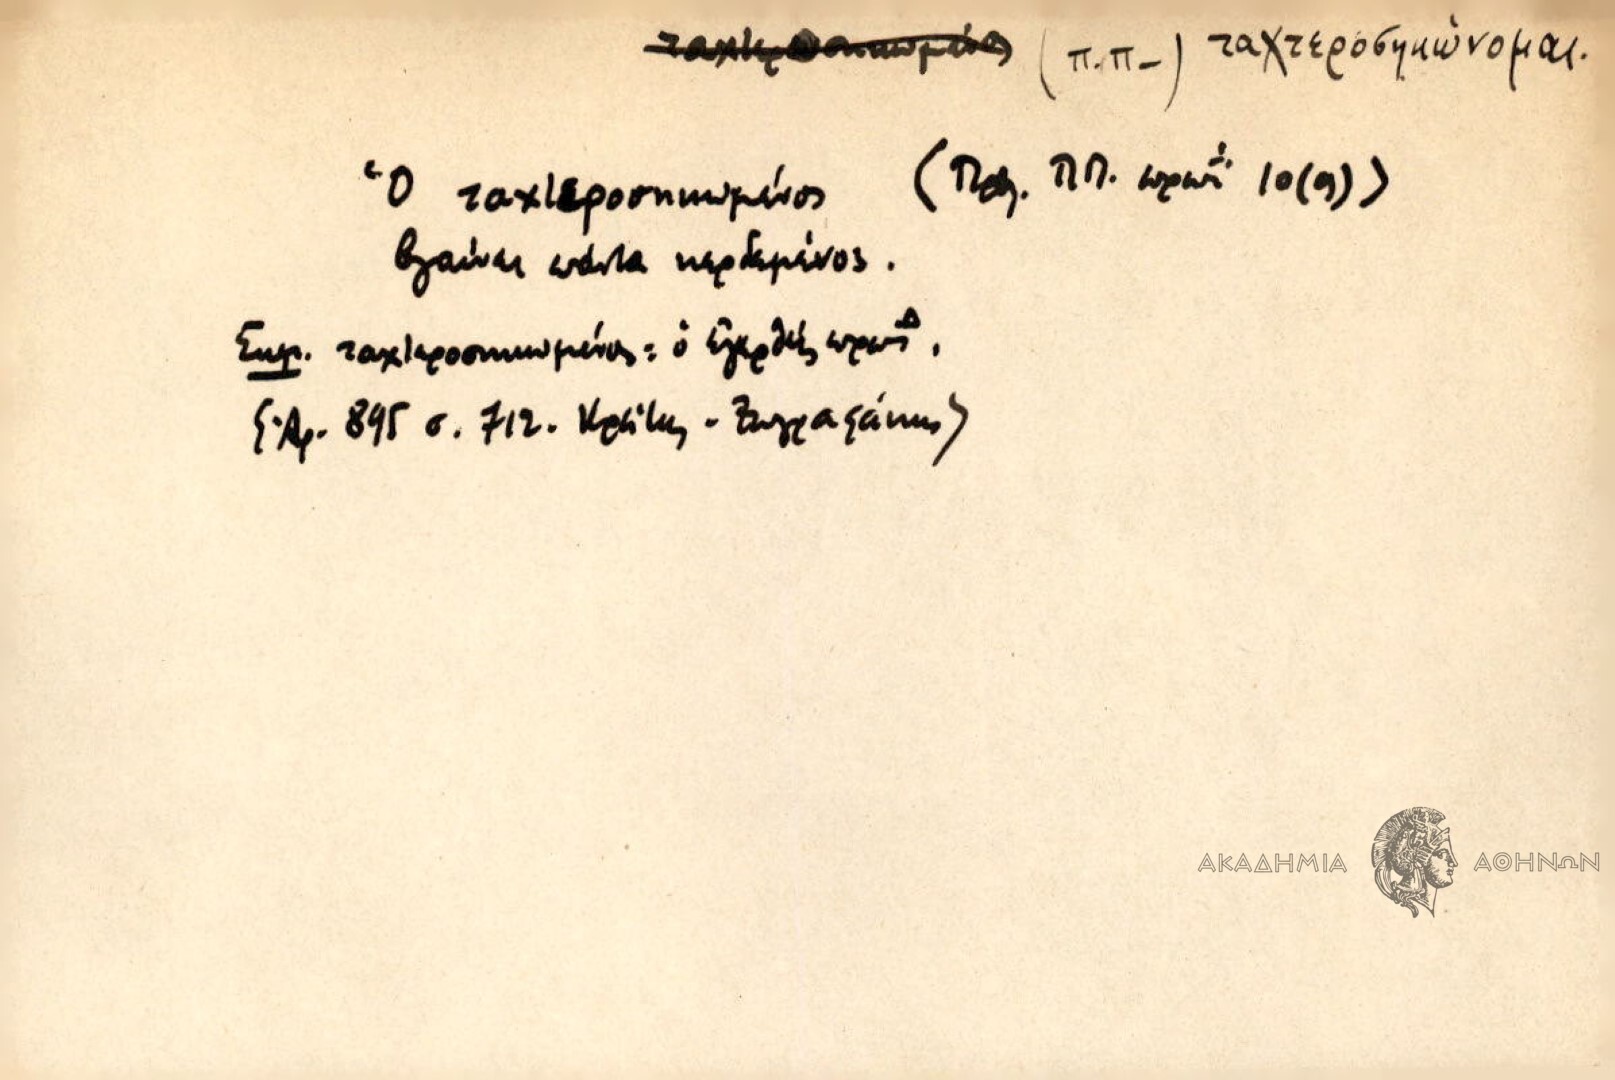 ταχτεροσηκωμένος (π.π-) ταχτεροσηκώνομαι.
Ὁ ταχτεροσηκωμένος (Πρβ. ΠΠ. πρωΐ 10(α))
βγαίνει πάντα κερδεμένος.
Σημ. ταχτεροσηκωμένος = ὁ ἐγερθείς πρωΐ.
(Ἀρ. 895 σ. 712. Κρήτης - Ζωγραφάκης)
ΑΚΑΔΗΜΙΑ ΑΘΗΝΩΝ